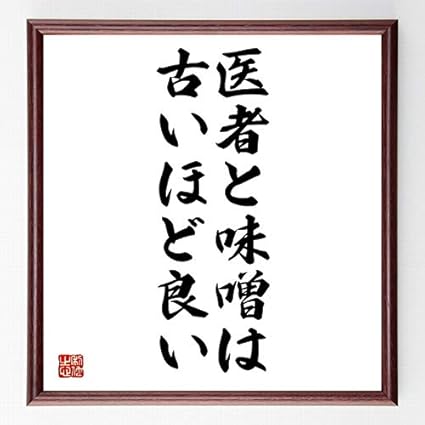 医者と味噌は
古いほど良い